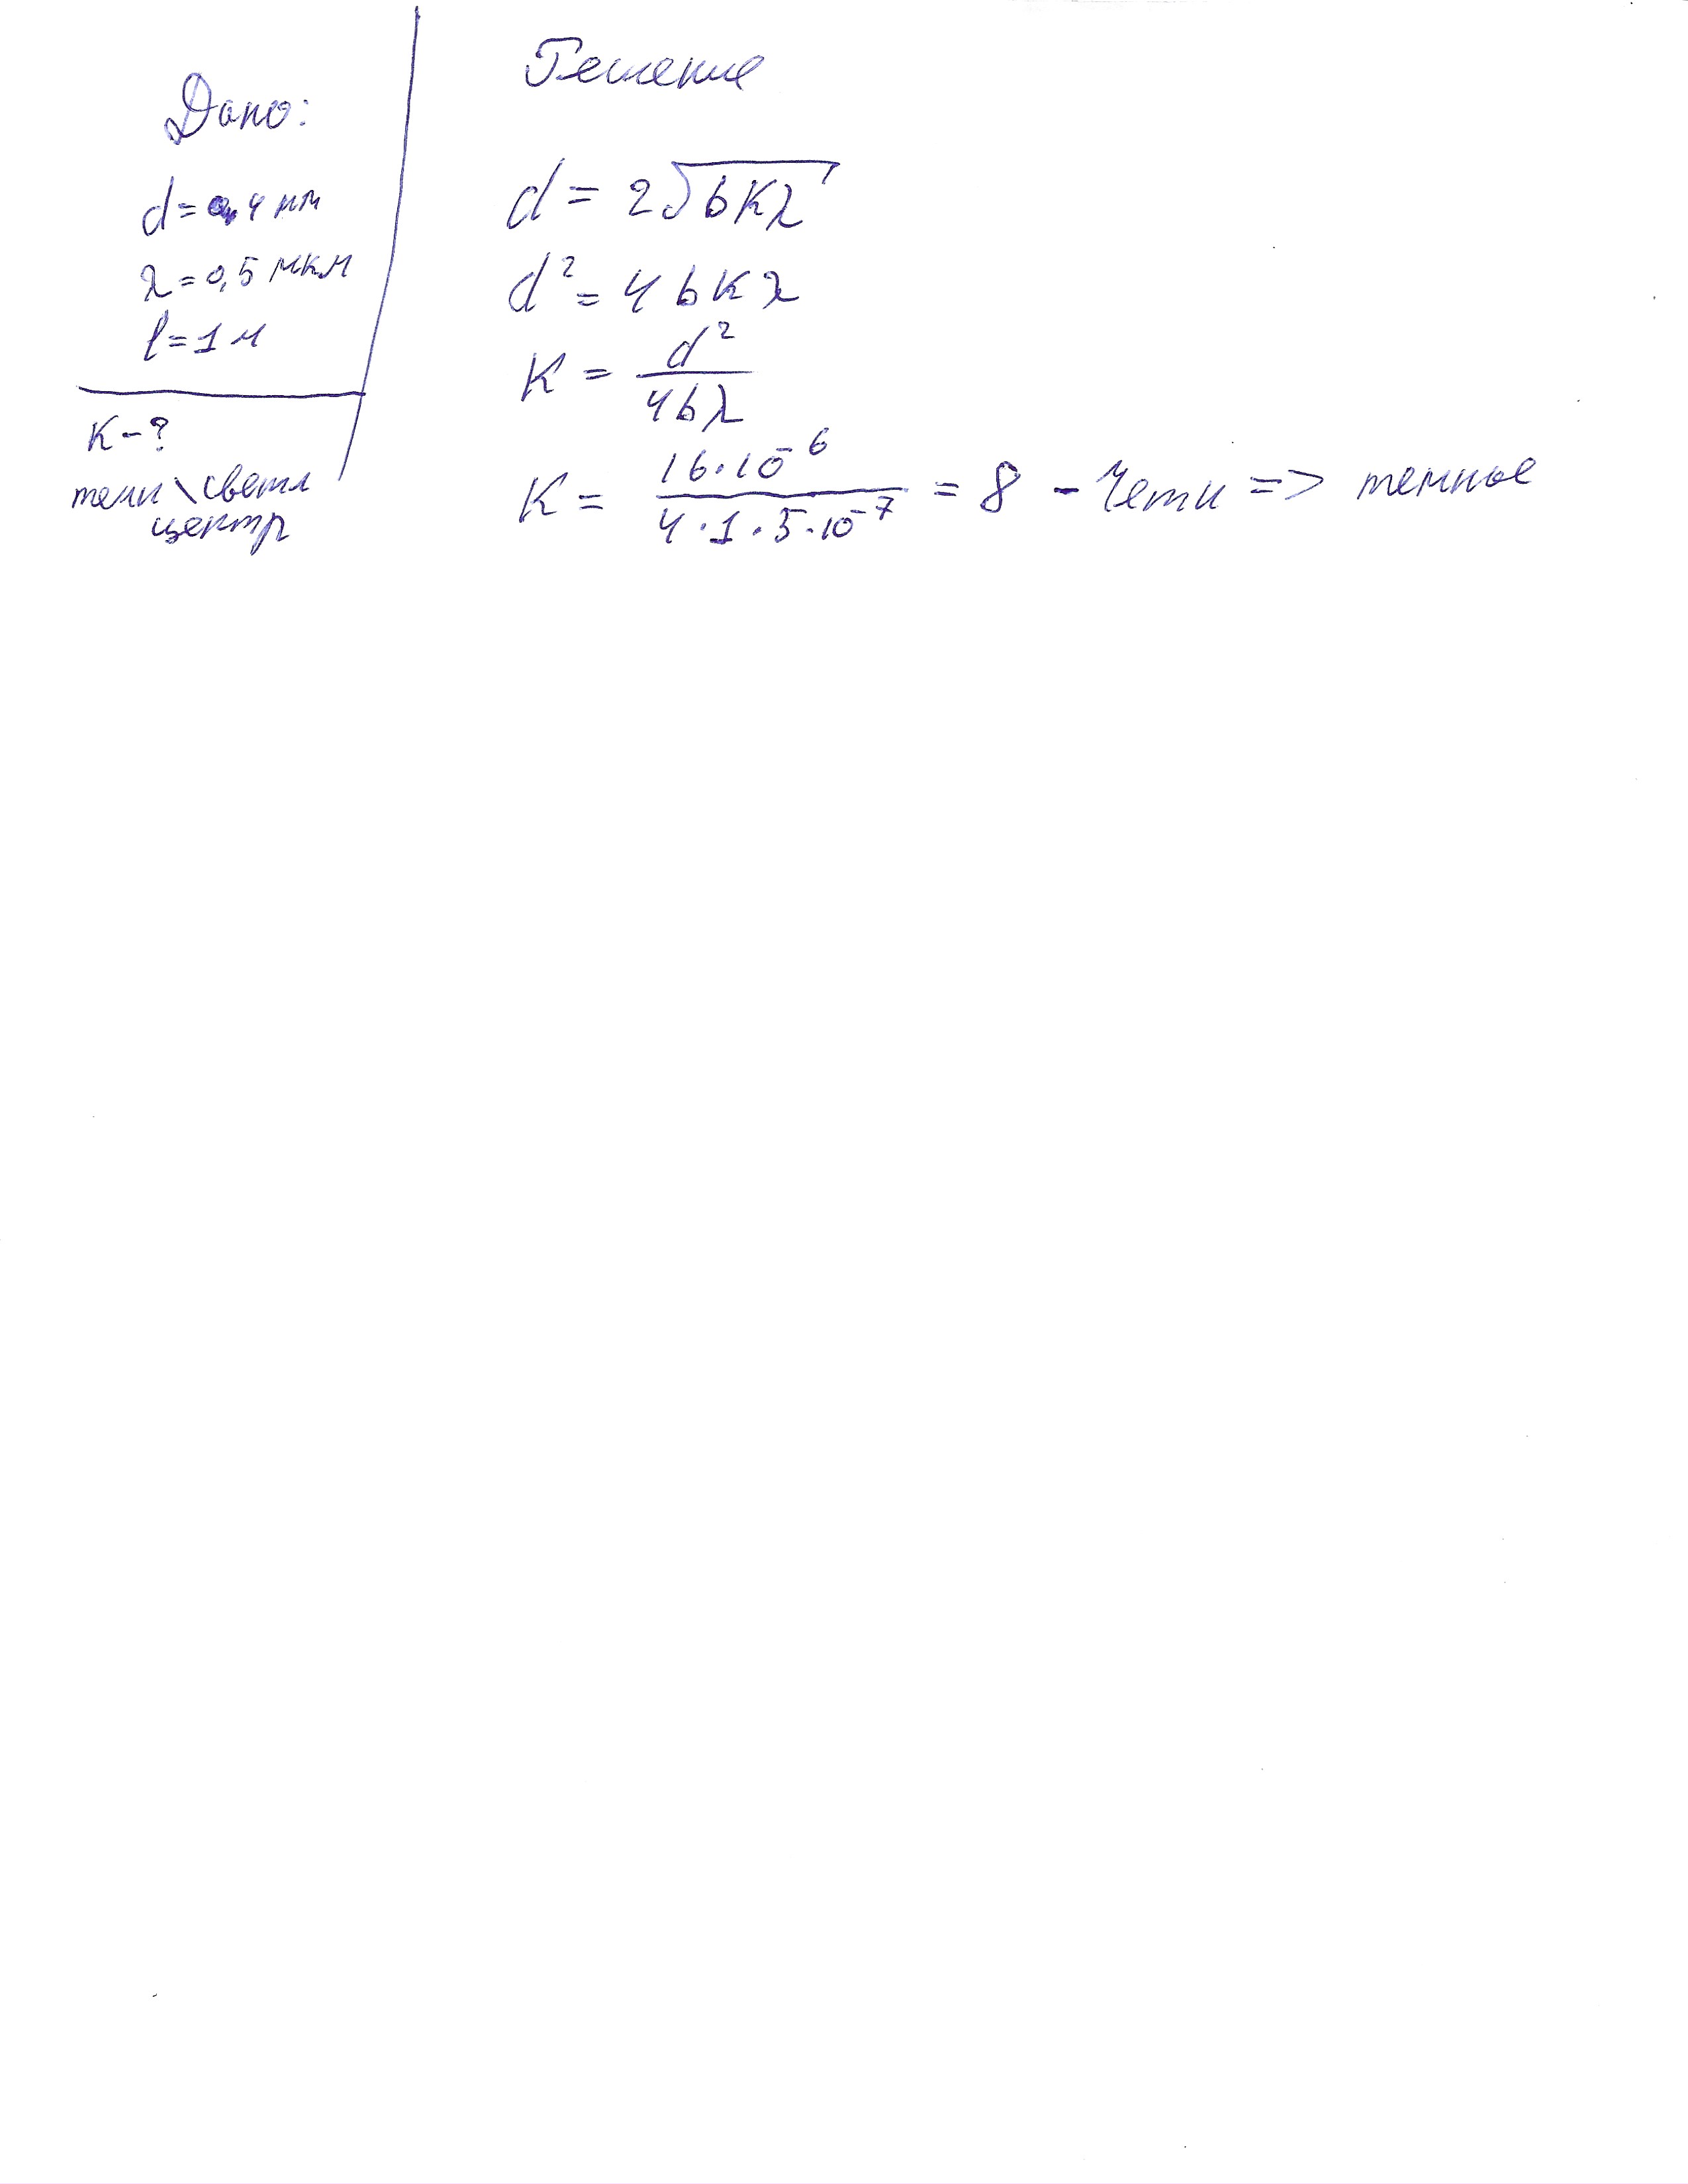 Дано:
d = 0,4 мм
λ = 0,5 мкм
l = 1 м
K - ?
темн \ светл
центр
Решение
d = 2√bKλ
d² = 4bKλ
K = d² / 4bλ
K = 16·10⁻⁶ / 4·1·5·10⁻⁷ = 8 - Четн => темное